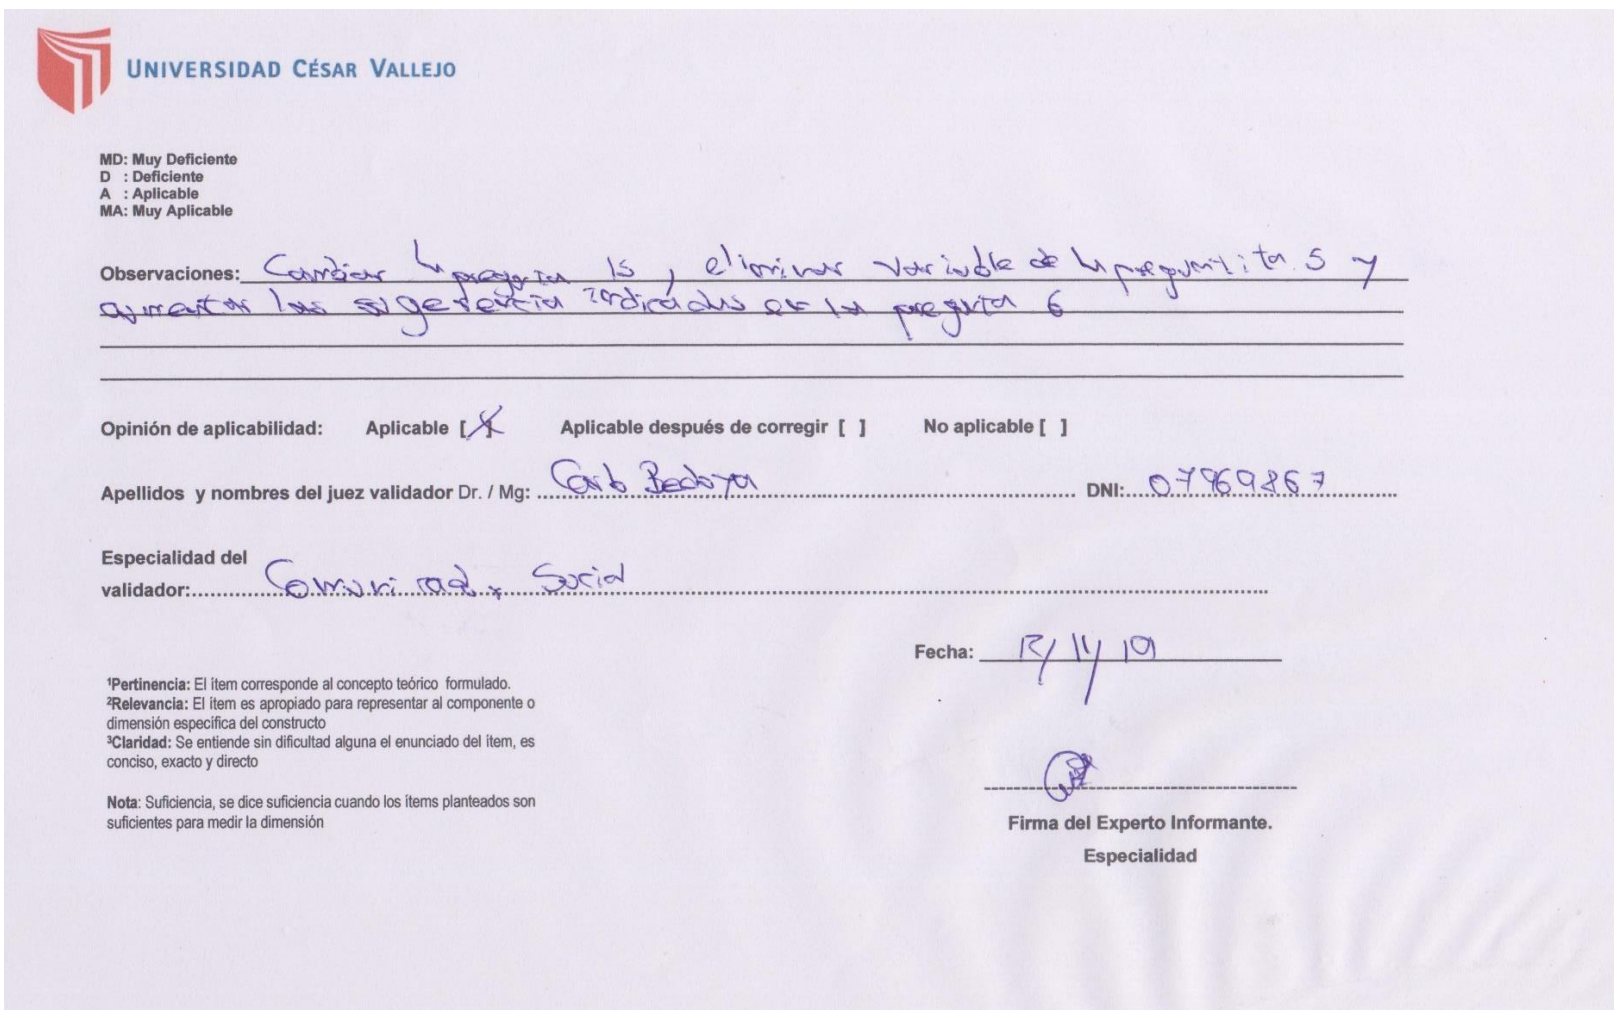 UNIVERSIDAD CÉSAR VALLEJO
MD: Muy Deficiente
D : Deficiente
A : Aplicable
MA: Muy Aplicable
Observaciones: Cambiar la pregunta 15, eliminar variable de la 5 y
aumentar las sugerencia indicadas en la pregunta 6
Opinión de aplicabilidad: Aplicable [X] Aplicable después de corregir [ ] No aplicable [ ]
Apellidos y nombres del juez validador Dr. / Mg: Bedoya DNI: 07969867
Especialidad del
validador: Social
Fecha: 12/11/19
¹Pertinencia: El ítem corresponde al concepto teórico formulado.
²Relevancia: El ítem es apropiado para representar al componente o
dimensión específica del constructo
³Claridad: Se entiende sin dificultad alguna el enunciado del ítem, es
conciso, exacto y directo
Nota: Suficiencia, se dice suficiencia cuando los ítems planteados son
suficientes para medir la dimensión
Firma del Experto Informante.
Especialidad